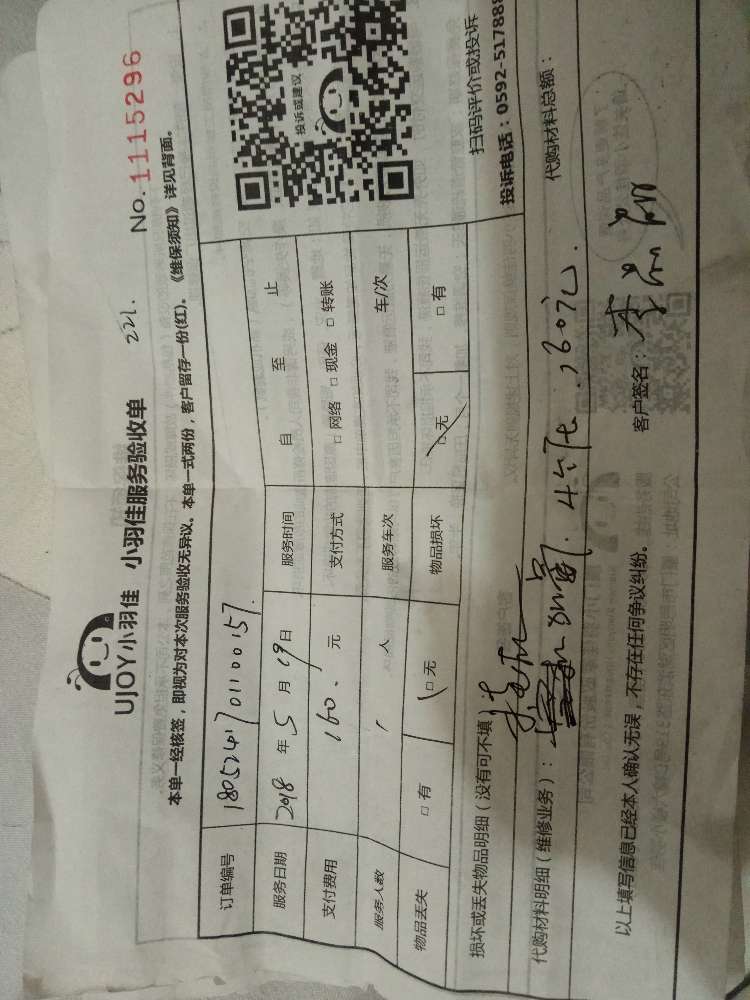 UJOY小羽佳 小羽佳服务验收单 221. No.1115296
本单一经核签，即视为对本次服务验收无异议。本单一式两份，客户留存一份(红)。《维保须知》详见背面。
订单编号 180524170110015）
服务日期 2018 年 5 月 19 日 服务时间 自 至 止
支付费用 160. 元 支付方式 □ 网络 □ 现金 □ 转账
服务人数 1 人 服务车次 车/次
物品丢失 □ 有 □ 无 物品损坏 □ 无 □ 有
投诉或建议
扫码评价或投诉
投诉电话：0592-517888
损坏或丢失物品明细（没有可不填
代购材料明细（维修业务）： 4个 160元. 代购材料总额：
以上填写信息已经本人确认无误，不存在任何争议纠纷。 客户签名：李